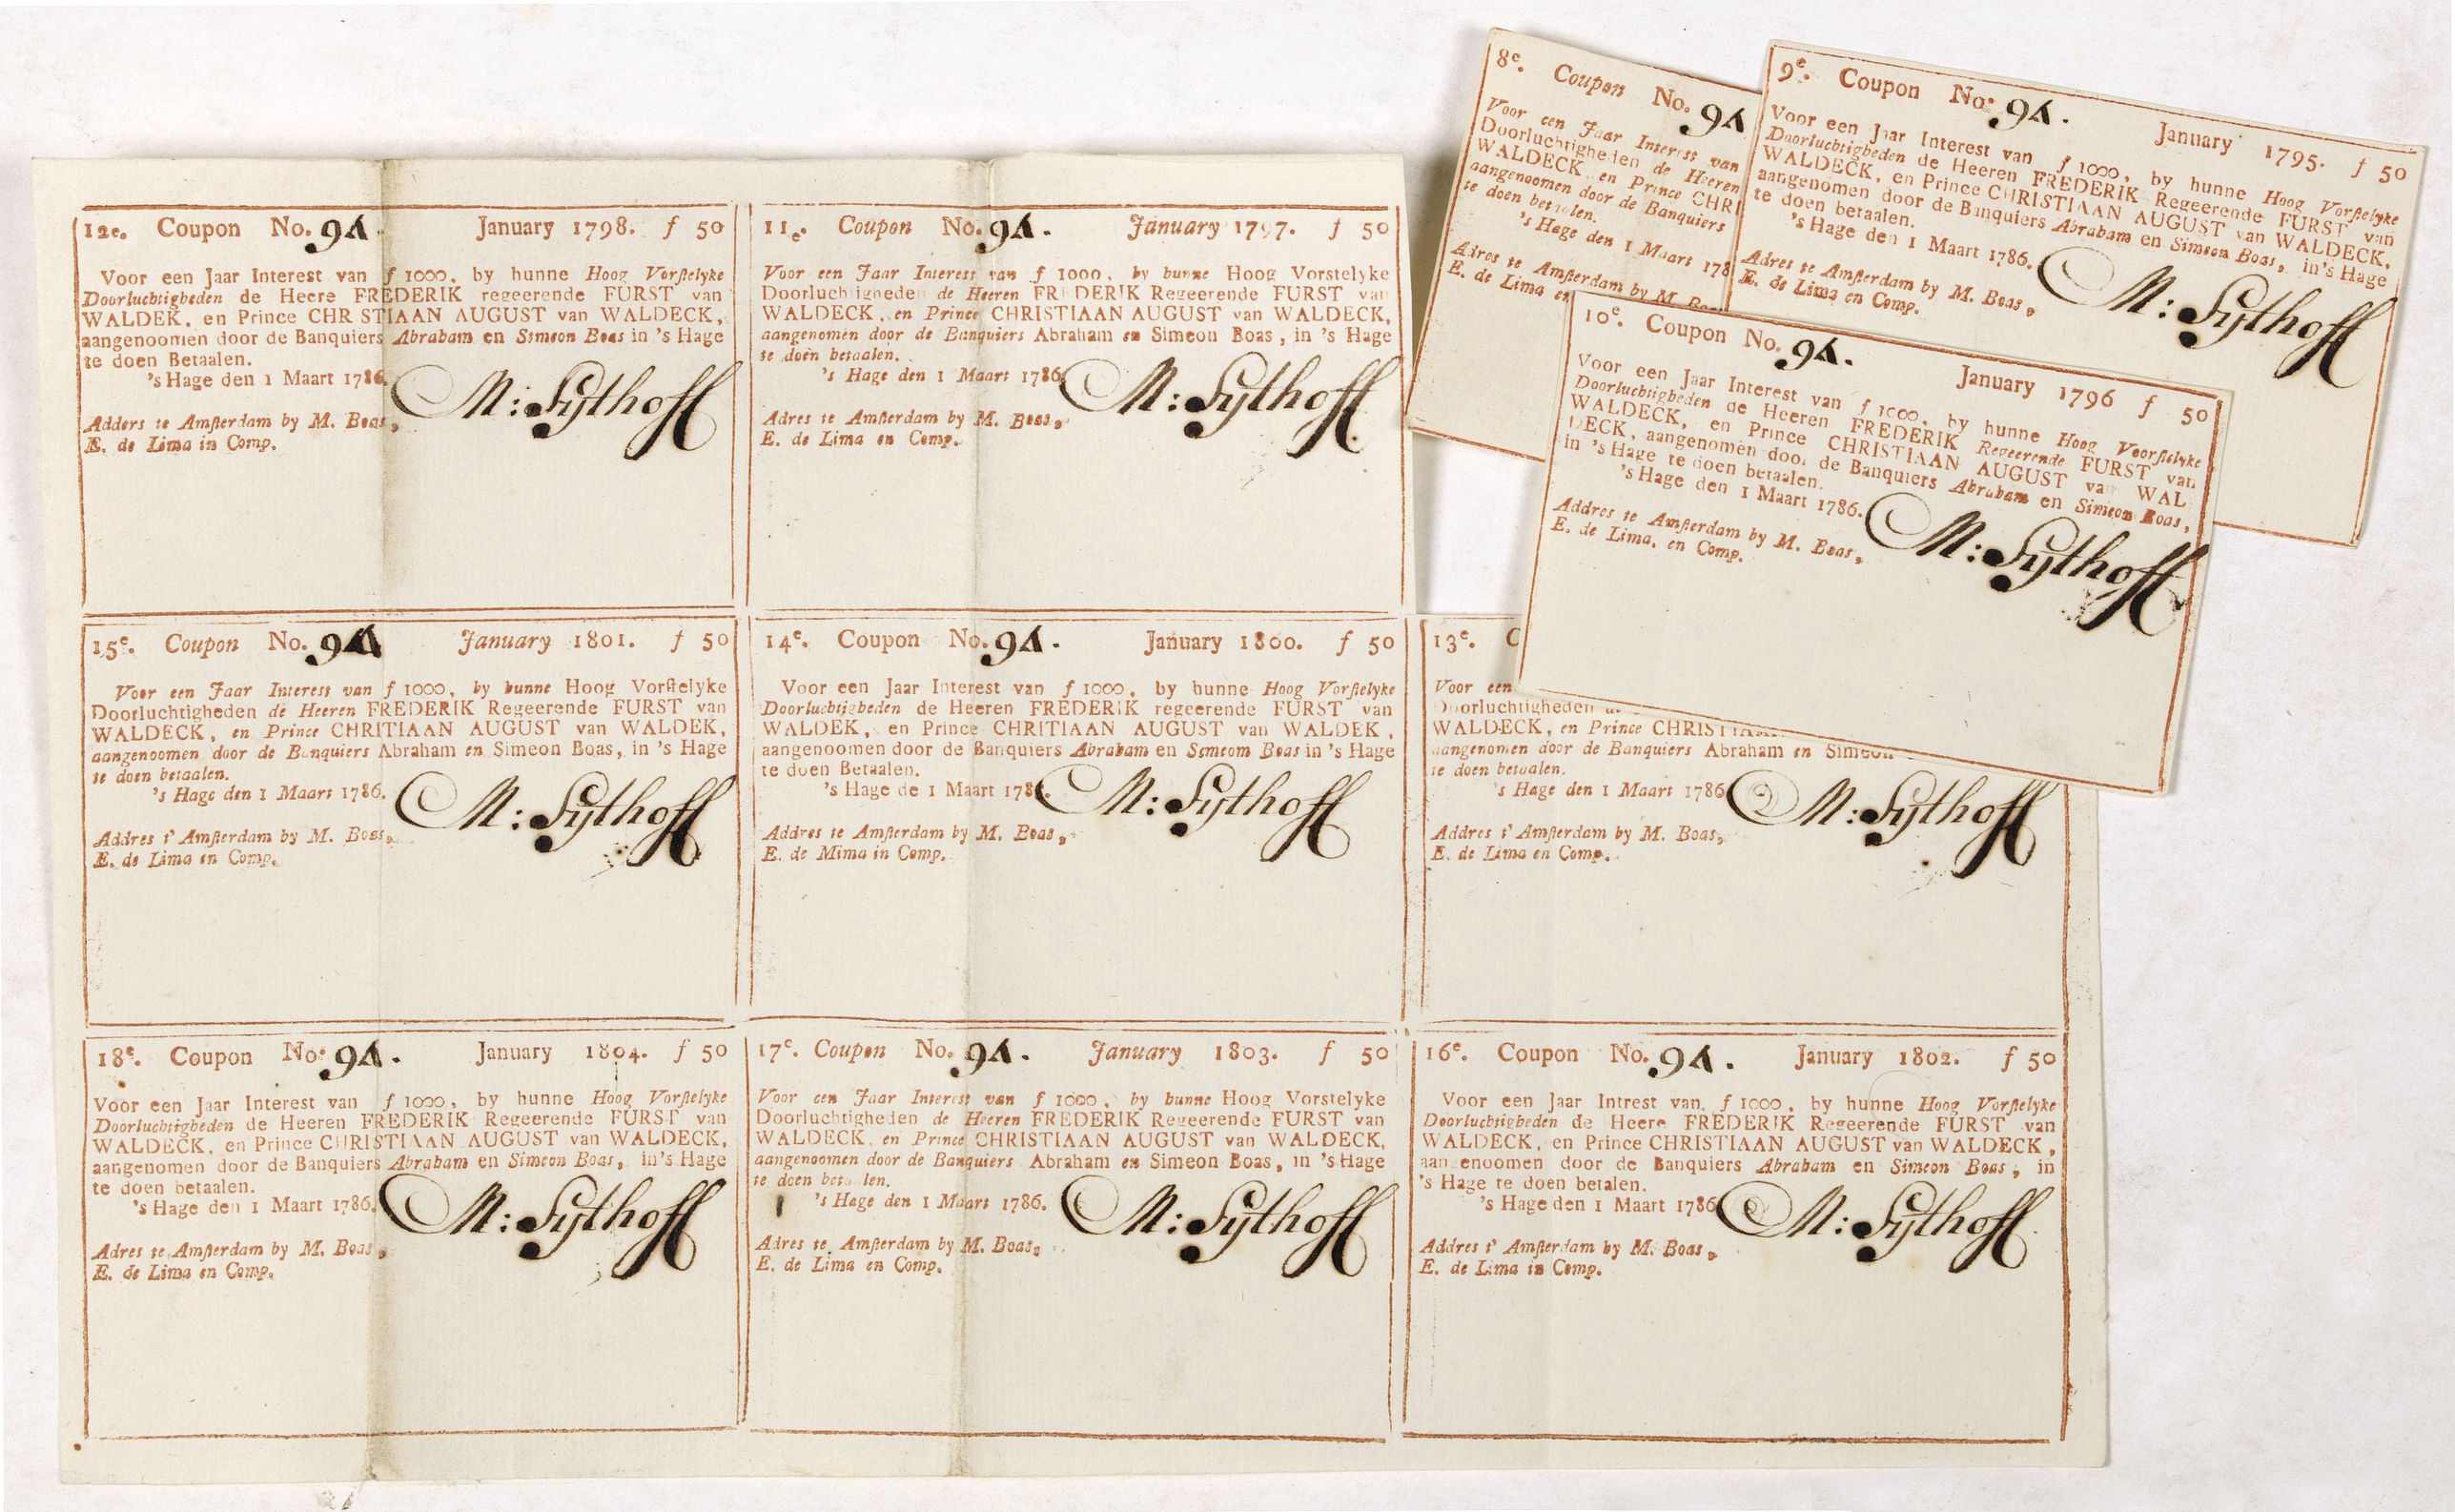 12e. Coupon No. 94. January 1798. f 50
Voor een Jaar Interest van f 1000, by hunne Hoog Vorstelyke
Doorluchtigheden de Heere FREDERIK regeerende FURST van
WALDEK, en Prince CHR STIAAN AUGUST van WALDECK,
aangenoomen door de Banquiers Abraham en Simeon Boas in 's Hage
te doen Betaalen.
's Hage den 1 Maart 1786.
M: Sythoff
Adders te Amsterdam by M. Boas,
E. de Lima in Comp.
11e. Coupon No. 94. January 1797. f 50
Voor een Jaar Interest van f 1000, by hunne Hoog Vorstelyke
Doorluchtigheden de Heeren FREDERIK Regeerende FURST van
WALDECK, en Prince CHRISTIAAN AUGUST van WALDECK,
aangenomen door de Banquiers Abraham en Simeon Boas, in 's Hage
te doen betaalen.
's Hage den 1 Maart 1786
M: Sythoff
Adres te Amsterdam by M. Boas,
E. de Lima en Comp.
8e. Coupon No. 94
Voor een Jaar Interest van
Doorluchtigheden de Heeren
WALDECK, en Prince CHRI
aangenoomen door de Banquiers
te doen betalen.
's Hage den 1 Maart 178
Adres te Amsterdam by M.
E. de Lima
9e. Coupon No. 94. January 1795. f 50
Voor een Jaar Interest van f 1000, by hunne Hoog Vorstelyke
Doorluchtigheden de Heeren FREDERIK Regeerende FURST van
WALDECK, en Prince CHRISTIAAN AUGUST van WALDECK,
aangenomen door de Banquiers Abraham en Simeon Boas, in's Hage
te doen betaalen.
's Hage den 1 Maart 1786.
M: Sythoff
Adres te Amsterdam by M. Boas,
E. de Lima en Comp.
10e. Coupon No. 94. January 1796 f 50
Voor een Jaar Interest van f 1000, by hunne Hoog Voorstelyke
Doorluchtigheden de Heeren FREDERIK Regeerende FURST van
WALDECK, en Prince CHRISTIAAN AUGUST van WAL
DECK, aangenomen door de Banquiers Abraham en Simeon Boas,
in 's Hage te doen betaalen.
's Hage den 1 Maart 1786.
M: Sythoff
Addres te Amsterdam by M. Boas,
E. de Lima, en Comp.
15e. Coupon No. 94 January 1801. f 50
Voor een Jaar Interest van f 1000, by hunne Hoog Vorstelyke
Doorluchtigheden de Heeren FREDERIK Regeerende FURST van
WALDECK, en Prince CHRITIAAN AUGUST van WALDEK,
aangenoomen door de Banquiers Abraham en Simeon Boas, in 's Hage
te doen betaalen.
's Hage den 1 Maart 1786.
M: Sythoff
Addres t' Amsterdam by M. Boas,
E. de Lima en Comp.
14e. Coupon No. 94. January 1800. f 50
Voor een Jaar Interest van f 1000, by hunne Hoog Vorstelyke
Doorluchtigheden de Heeren FREDERIK regeerende FURST van
WALDEK, en Prince CHRITIAAN AUGUST van WALDEK,
aangenoomen door de Banquiers Abraham en Semeom Boas in 's Hage
te doen Betaalen.
's Hage de 1 Maart 1786.
M: Sythoff
Addres te Amsterdam by M. Boas,
E. de Mima in Comp.
13e. C
Voor een
Doorluchtigheden
WALDECK, en Prince
aangenomen door de Banquiers Abraham en Simeon
te doen betaalen.
's Hage den 1 Maart 1786
M: Sythoff
Addres t' Amsterdam by M. Boas,
E. de Lima en Comp.
18e. Coupon No. 94. January 1804. f 50
Voor een Jaar Interest van f 1000, by hunne Hoog Vorstelyke
Doorluchtigheden de Heeren FREDERIK Regeerende FURST van
WALDECK, en Prince CHRISTIAAN AUGUST van WALDECK,
aangenomen door de Banquiers Abraham en Simeon Boas, in's Hage
te doen betaalen.
's Hage den 1 Maart 1786.
M: Sythoff
Adres te Amsterdam by M. Boas,
E. de Lima en Comp.
17e. Coupon No. 94. January 1803. f 50
Voor een Jaar Interest van f 1000, by hunne Hoog Vorstelyke
Doorluchtigheden de Heeren FREDERIK Regeerende FURST van
WALDECK, en Prince CHRISTIAAN AUGUST van WALDECK,
aangenoomen door de Banquiers Abraham en Simeon Boas, in 's Hage
te doen betaalen.
's Hage den 1 Maart 1786.
M: Sythoff
Adres te Amsterdam by M. Boas,
E. de Lima en Comp.
16e. Coupon No. 94. January 1802. f 50
Voor een Jaar Intrest van f 1000, by hunne Hoog Vorstelyke
Doorluchtigheden de Heere FREDERIK Regeerende FURST van
WALDECK, en Prince CHRISTIAAN AUGUST van WALDECK,
aangenoomen door de Banquiers Abraham en Simeon Boas, in
's Hage te doen betalen.
's Hage den 1 Maart 1786
M: Sythoff
Addres t' Amsterdam by M. Boas,
E. de Lima in Comp.